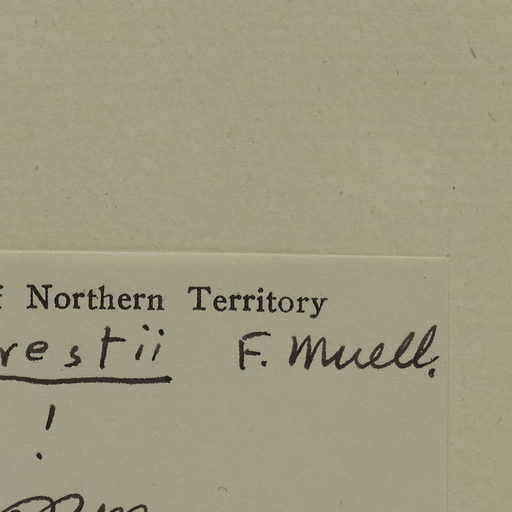 f Northern Territory
restii F. Muell.
!